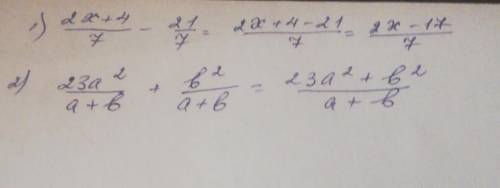 1) (2x+4)/7 - 21/7 = (2x+4-21)/7 = (2x-17)/7
2) 23a²/(a+b) + b²/(a+b) = (23a²+b²)/(a+b)